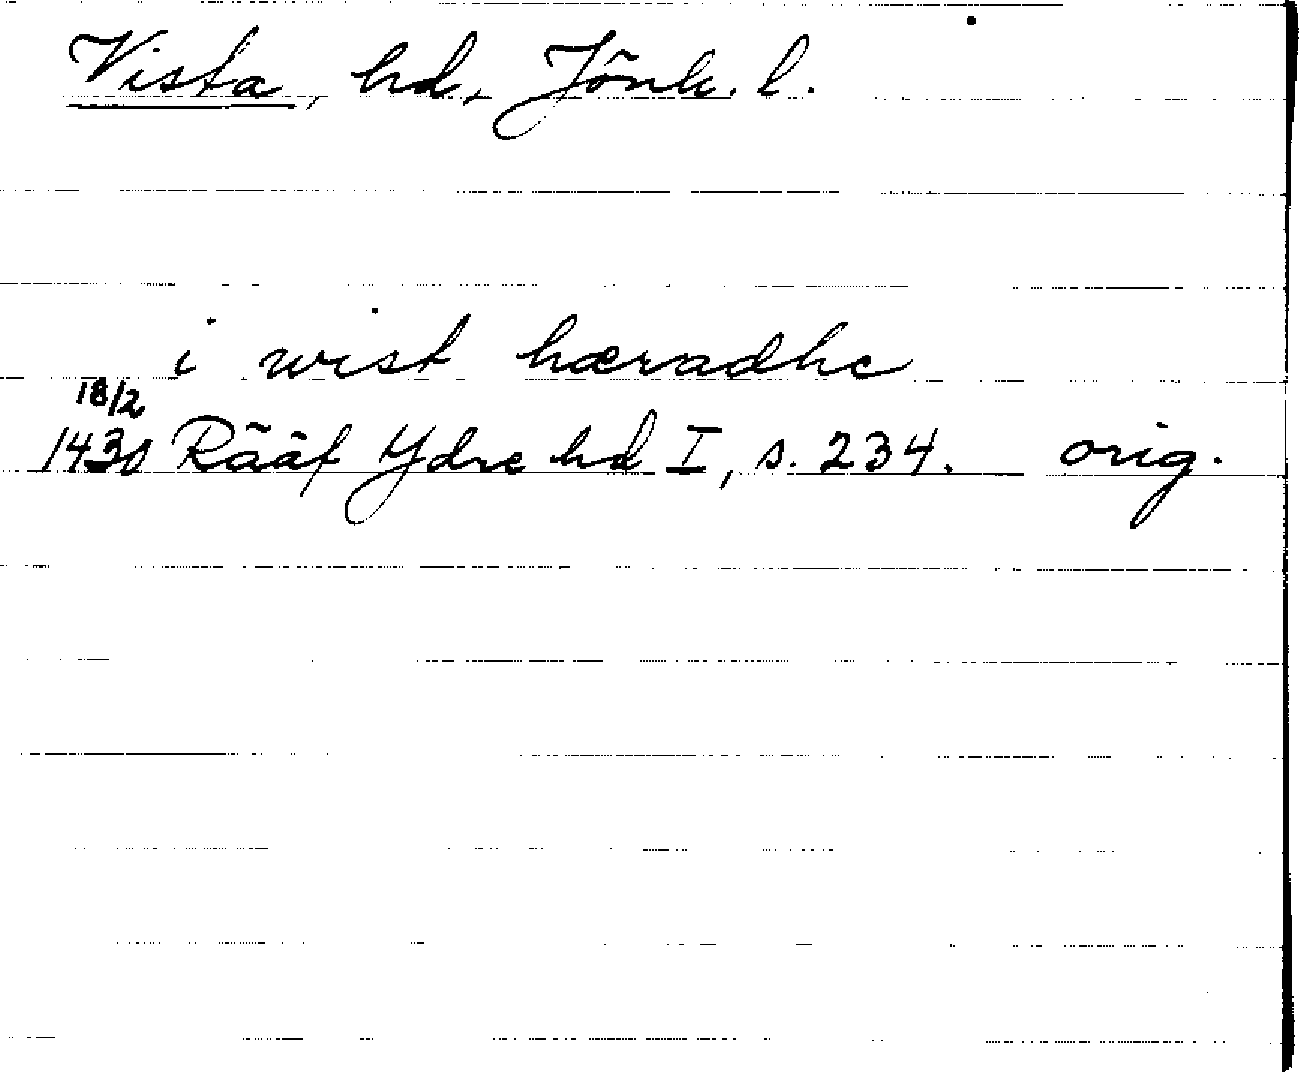 Vista, hd, Jönk. l.
i wist hæradhe
18/2
1430 Rääf Ydre hd I, s. 234. orig.